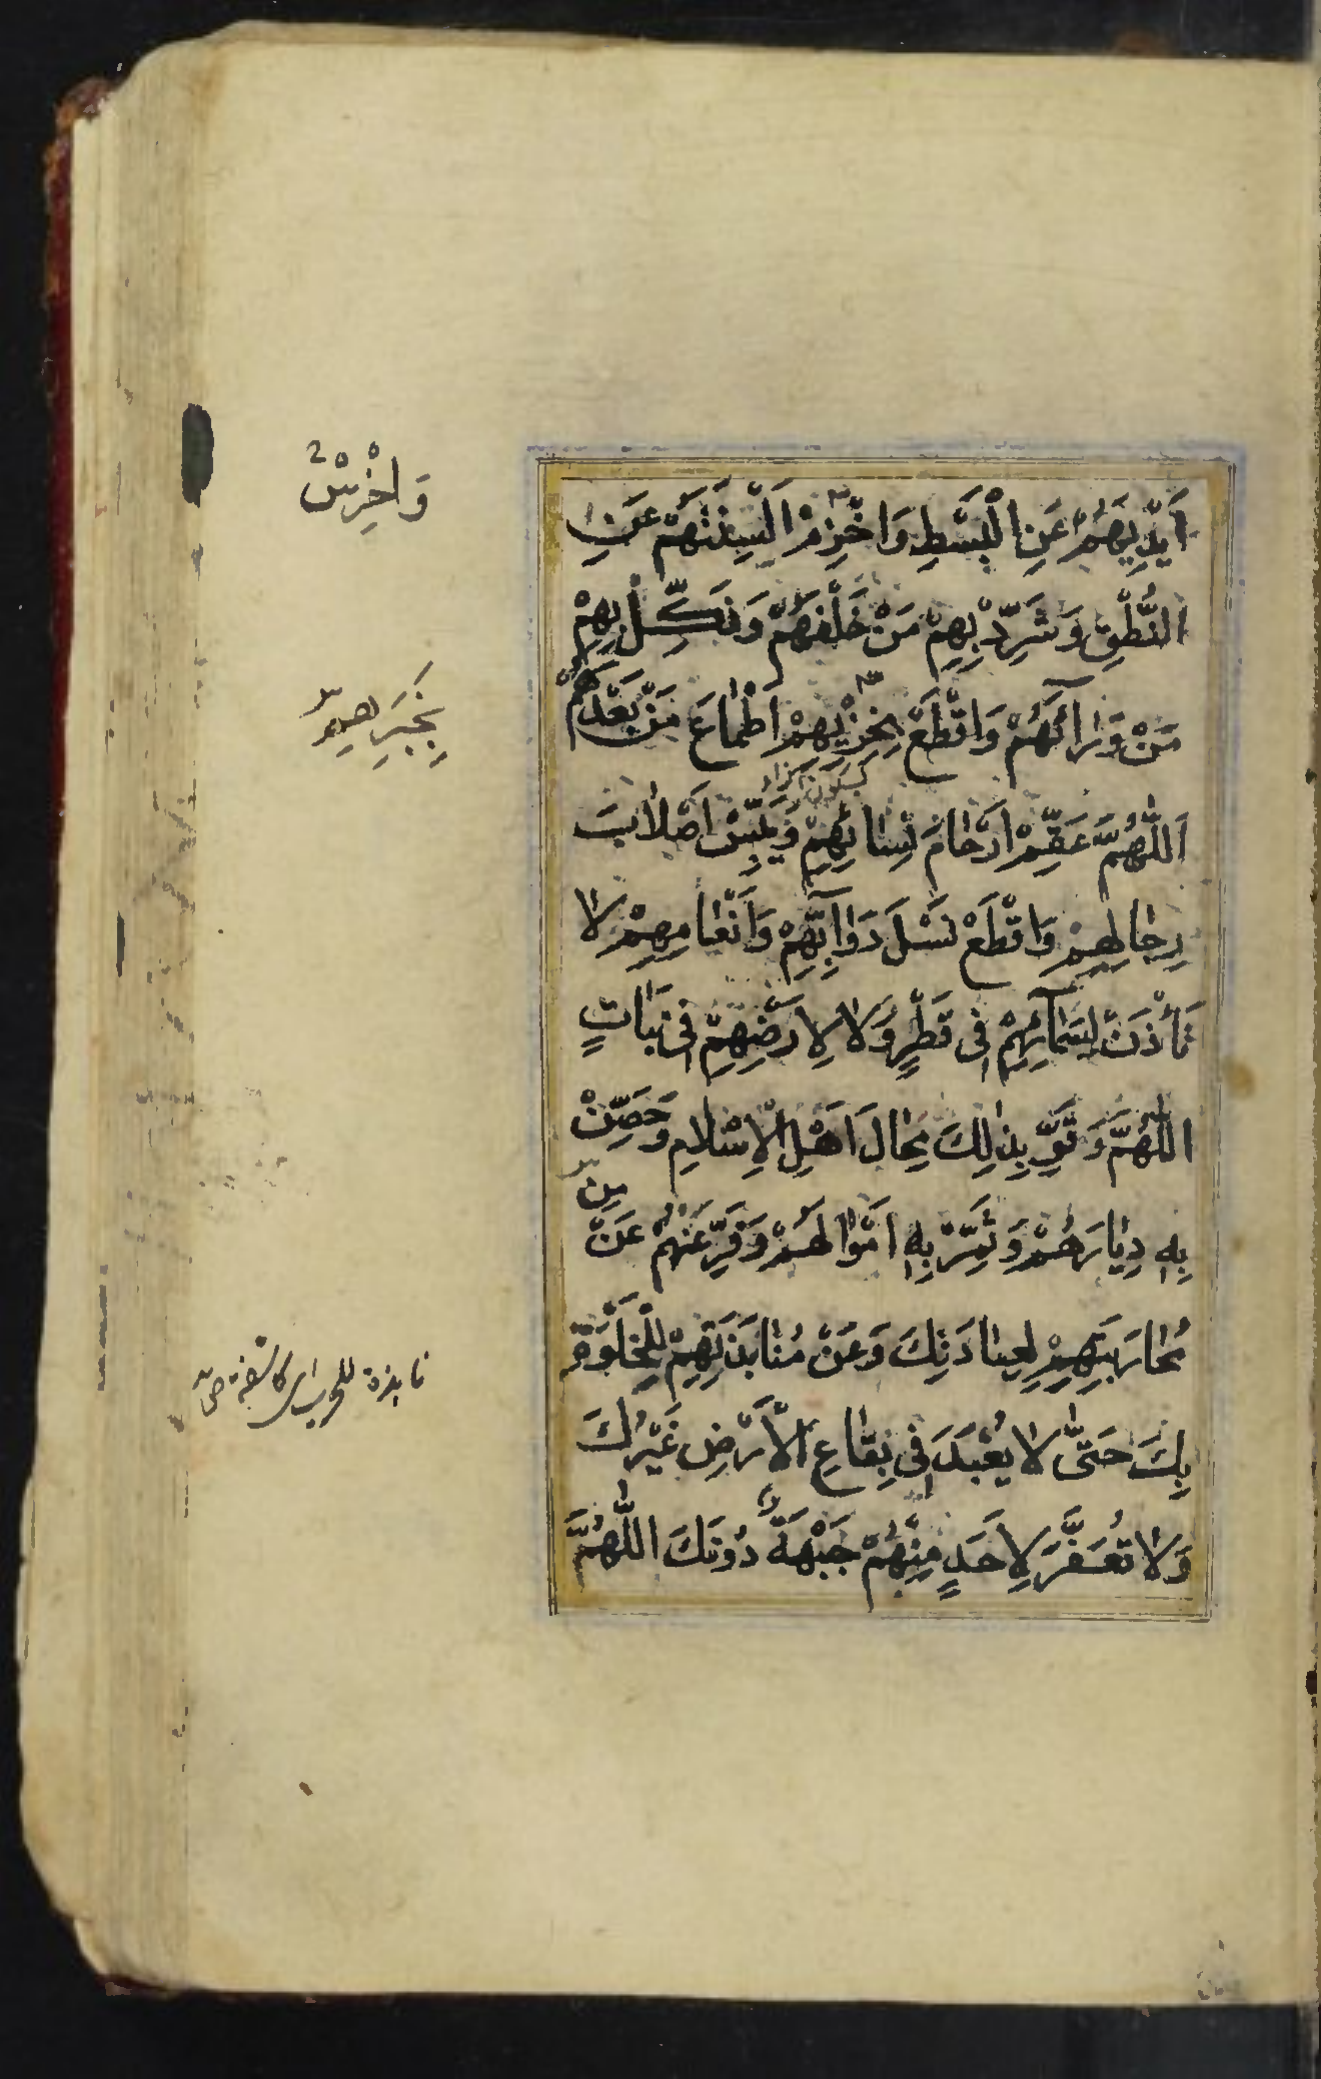 اَيْدِيَهُمْ عَنِ الْبَسْطِ وَاخْزِمْ اَلْسِنَتَهُمْ عَنِ
النُّطْقِ وَشَرِّدْ بِهِمْ مَنْ خَلْفَهُمْ وَنَكِّلْ بِهِمْ
مَنْ وَرٰآئَهُمْ وَاقْطَعْ بِخِزْيِهِمْ اَطْمٰاعَ مَنْ بَعْدَهُمْ
اَللّٰهُمَّ عَقِّمْ اَرْحٰامَ نِسٰائِهِمْ وَيَبِّسْ اَصْلٰابَ
رِجٰالِهِمْ وَاقْطَعْ نَسْلَ دَوٰابِّهِمْ وَاَنْعٰامِهِمْ لٰا
تَأْذَنْ لِسَمٰآئِهِمْ فِى قَطْرٍ وَلٰا لِاَرْضِهِمْ فِى نَبٰاتٍ
اللّٰهُمَّ وَقَوِّ بِذٰلِكَ مِحٰالَ اَهْلِ الْاِسْلٰامِ وَحَصِّنْ
بِهِ دِيٰارَهُمْ وَثَمِّرْ بِهِ اَمْوٰالَهُمْ وَفَرِّغْهُمْ عَنْ
مُحٰارَبَتِهِمْ لِعِبٰادَتِكَ وَعَنْ مُنٰابَذَتِهِمْ لِلْخَلْوَةِ
بِكَ حَتّٰى لٰا يُعْبَدَ فِى بِقٰاعِ الْاَرْضِ غَيْرُكَ
وَلٰا تُعَفَّرَ لِاَحَدٍ مِنْهُمْ جَبْهَةٌ دُونَكَ اللّٰهُمَّ
وَاخْرِسْ
نابذة للحرب اى كاشفة ص